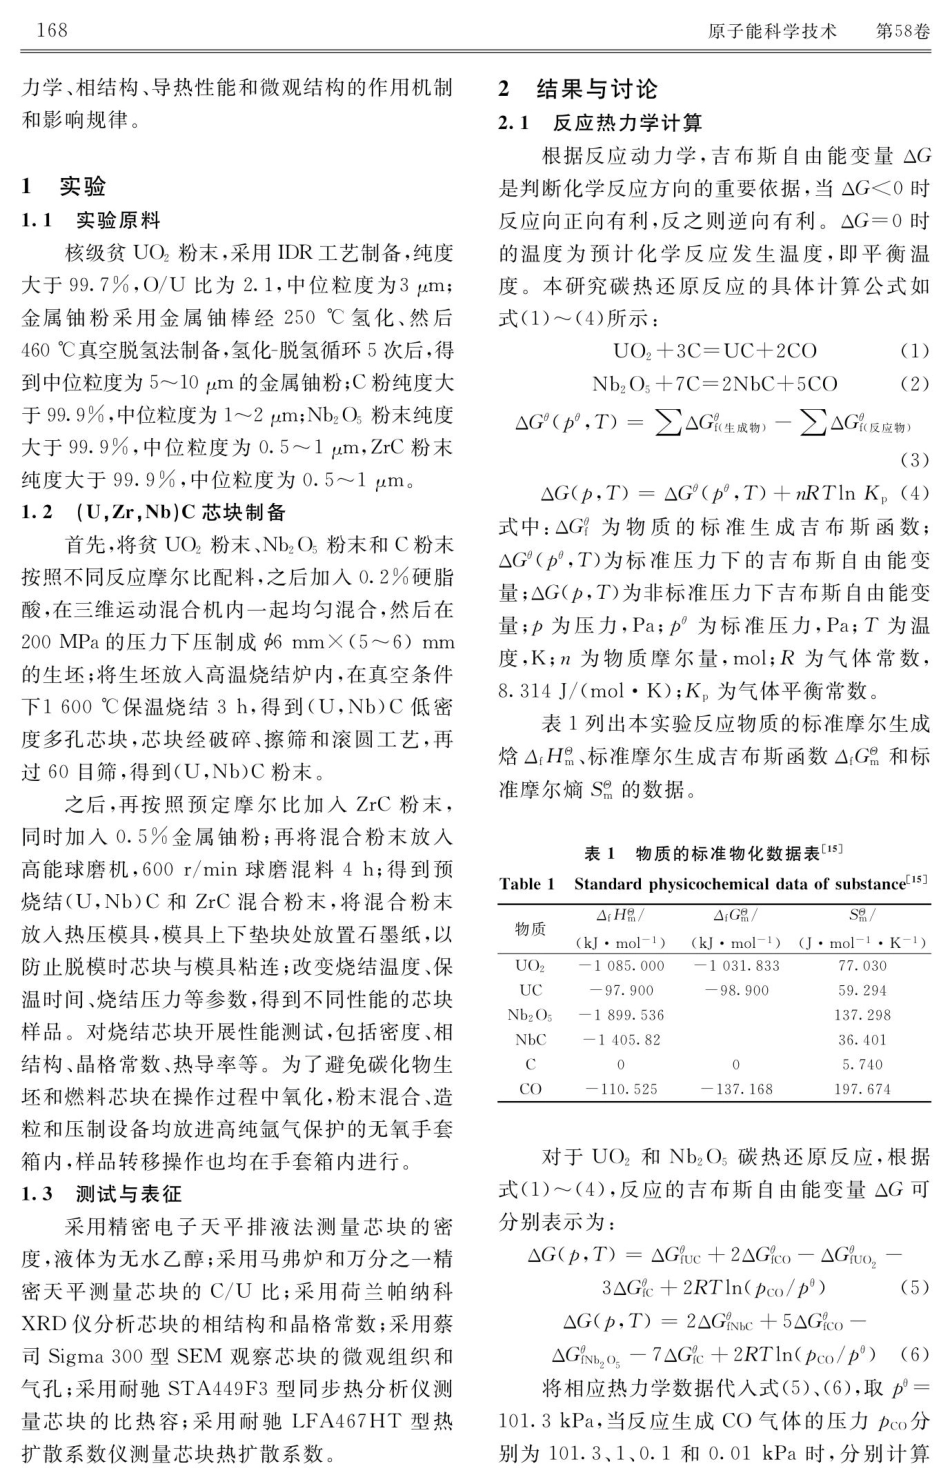 168
原子能科学技术 第58卷
力学、相结构、导热性能和微观结构的作用机制
和影响规律。
1 实验
1.1 实验原料
核级贫 UO₂ 粉末,采用 IDR 工艺制备,纯度
大于 99.7%,O/U 比为 2.1,中位粒度为3 μm;
金属铀粉采用金属铀棒经 250 ℃氢化、然后
460 ℃真空脱氢法制备,氢化-脱氢循环 5 次后,得
到中位粒度为 5～10 μm 的金属铀粉;C 粉纯度大
于 99.9%,中位粒度为 1～2 μm;Nb₂O₅ 粉末纯度
大于 99.9%,中位粒度为 0.5～1 μm,ZrC 粉末
纯度大于 99.9%,中位粒度为 0.5～1 μm。
1.2 (U,Zr,Nb)C 芯块制备
首先,将贫 UO₂ 粉末、Nb₂O₅ 粉末和 C 粉末
按照不同反应摩尔比配料,之后加入 0.2%硬脂
酸,在三维运动混合机内一起均匀混合,然后在
200 MPa 的压力下压制成 ϕ6 mm×(5～6) mm
的生坯;将生坯放入高温烧结炉内,在真空条件
下1 600 ℃保温烧结 3 h,得到(U,Nb)C 低密
度多孔芯块,芯块经破碎、擦筛和滚圆工艺,再
过 60 目筛,得到(U,Nb)C 粉末。
之后,再按照预定摩尔比加入 ZrC 粉末,
同时加入 0.5%金属铀粉;再将混合粉末放入
高能球磨机,600 r/min 球磨混料 4 h;得到预
烧结(U,Nb)C 和 ZrC 混合粉末,将混合粉末
放入热压模具,模具上下垫块处放置石墨纸,以
防止脱模时芯块与模具粘连;改变烧结温度、保
温时间、烧结压力等参数,得到不同性能的芯块
样品。对烧结芯块开展性能测试,包括密度、相
结构、晶格常数、热导率等。为了避免碳化物生
坯和燃料芯块在操作过程中氧化,粉末混合、造
粒和压制设备均放进高纯氩气保护的无氧手套
箱内,样品转移操作也均在手套箱内进行。
1.3 测试与表征
采用精密电子天平排液法测量芯块的密
度,液体为无水乙醇;采用马弗炉和万分之一精
密天平测量芯块的 C/U 比;采用荷兰帕纳科
XRD 仪分析芯块的相结构和晶格常数;采用蔡
司 Sigma 300 型 SEM 观察芯块的微观组织和
气孔;采用耐驰 STA449F3 型同步热分析仪测
量芯块的比热容;采用耐驰 LFA467HT 型热
扩散系数仪测量芯块热扩散系数。
2 结果与讨论
2.1 反应热力学计算
根据反应动力学,吉布斯自由能变量 ΔG
是判断化学反应方向的重要依据,当 ΔG<0 时
反应向正向有利,反之则逆向有利。ΔG=0 时
的温度为预计化学反应发生温度,即平衡温
度。本研究碳热还原反应的具体计算公式如
式(1)～(4)所示:
UO₂+3C=UC+2CO (1)
Nb₂O₅+7C=2NbC+5CO (2)
ΔG^θ(p^θ,T) = ∑ΔG^θ_f(生成物) − ∑ΔG^θ_f(反应物)
(3)
ΔG(p,T) = ΔG^θ(p^θ,T)+nRTln K_p (4)
式中:ΔG^θ_f 为物质的标准生成吉布斯函数;
ΔG^θ(p^θ,T)为标准压力下的吉布斯自由能变
量;ΔG(p,T)为非标准压力下吉布斯自由能变
量;p 为压力,Pa;p^θ 为标准压力,Pa;T 为温
度,K;n 为物质摩尔量,mol;R 为气体常数,
8.314 J/(mol·K);K_p 为气体平衡常数。
表 1 列出本实验反应物质的标准摩尔生成
焓 Δ_fH^⊖_m、标准摩尔生成吉布斯函数 Δ_fG^⊖_m 和标
准摩尔熵 S^⊖_m 的数据。
表 1 物质的标准物化数据表[15]
Table 1 Standard physicochemical data of substance[15]
物质 Δ_fH^⊖_m/(kJ·mol⁻¹) Δ_fG^⊖_m/(kJ·mol⁻¹) S^⊖_m/(J·mol⁻¹·K⁻¹)
UO₂ −1 085.000 −1 031.833 77.030
UC −97.900 −98.900 59.294
Nb₂O₅ −1 899.536 137.298
NbC −1 405.82 36.401
C 0 0 5.740
CO −110.525 −137.168 197.674
对于 UO₂ 和 Nb₂O₅ 碳热还原反应,根据
式(1)～(4),反应的吉布斯自由能变量 ΔG 可
分别表示为:
ΔG(p,T) = ΔG^θ_fUC + 2ΔG^θ_fCO − ΔG^θ_fUO₂ −
3ΔG^θ_fC + 2RTln(p_CO/p^θ) (5)
ΔG(p,T) = 2ΔG^θ_fNbC + 5ΔG^θ_fCO −
ΔG^θ_fNb₂O₅ − 7ΔG^θ_fC + 2RTln(p_CO/p^θ) (6)
将相应热力学数据代入式(5)、(6),取 p^θ=
101.3 kPa,当反应生成 CO 气体的压力 p_CO分
别为 101.3、1、0.1 和 0.01 kPa 时,分别计算